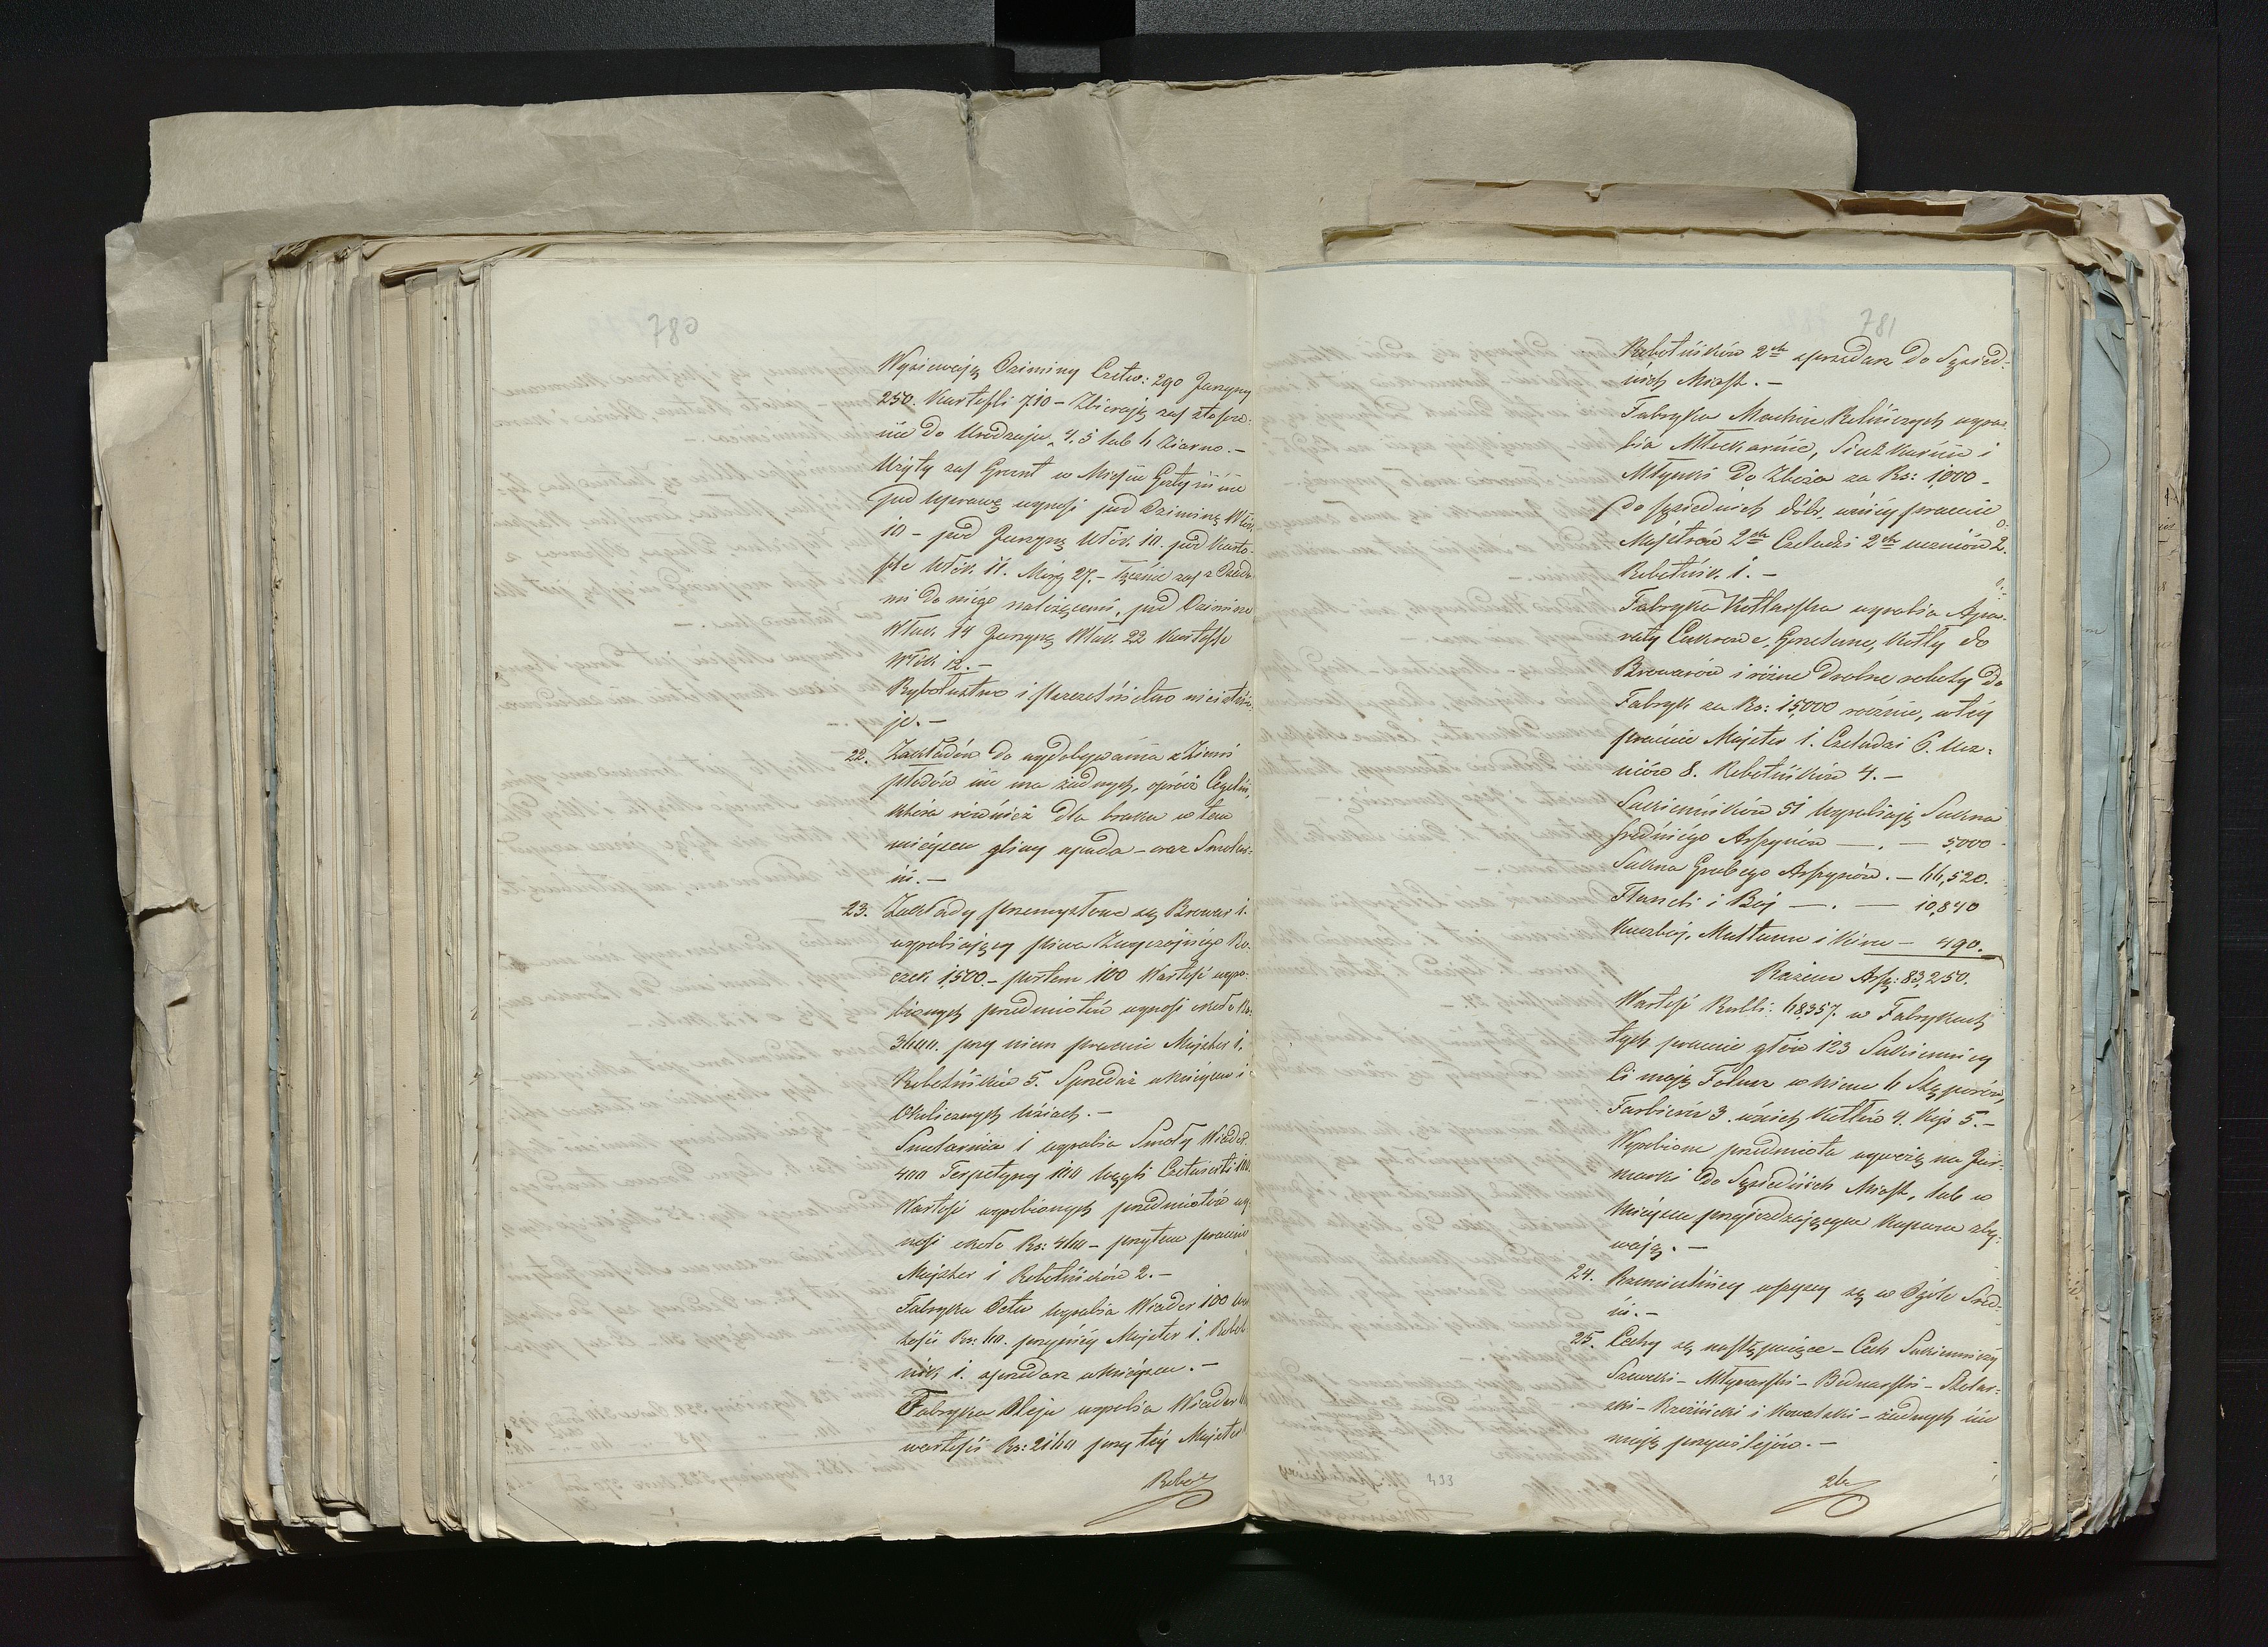 780
Wysiewają Oziminy Czetw: 290 Jarzyny
250. Kartofli 710 – Zbierają zaś stosow:
nie do Urodzaju, 4. 5 lub 6 Ziarno. –
Użyty zaś Grunt w Mieście Gostyninie
pod uprawę wynosi pod Oziminę Włók
10 – pod Jarzynę Włók. 10. pod Karto-
fle Włók. 11. Mórg 27. – łącznie zaś z
mi do niego należącemi, pod Ozimine
Włók. 14 Jarzynę Włók. 22 Kartofle
Włók 12. –
Rybołustwo i Pszczelnictwo nieistnie
je. –
22. Zakładów do wydobywania z Ziemi
płodów nie ma żadnych, oprócz Cegielni,
która również dla braku w tem
miejscu gliny upada – oraz Smolar-
ni. –
23. Zakłady przemysłowe są Browar 1.
wyrabiający piwa Zwyczajnego Be-
czek 1,500. – porteru 100 Wartość wyro-
bionych przedmiotów wynosi około Rs.
3600. przy nim pracuie Majster 1.
Robotników 5. Sprzedaż w miejscu i
Okolicznych Wsiach. –
Smolarnia 1 wyrabia Smoły Wiader
400 Terpetyny 100 węgli Czetwierti 100.
Wartość wyrobionych przedmiotów wy-
nosi około Rs: 460 – przytem pracuie
Majster 1 Robotników 2. –
Fabryka Octu wyrabia Wiader 100 war
tości Rs: 60. przyniéy Majster 1. Robot-
nik 1. sprzedaz w miejscu. –
Fabryka Oleju wyrabia Wiader
wartości Rs: 2160 przy téy Majster
Robot
781
Robotników 2ch sprzedaz do Sąsied-
nich Miast. –
Fabryka Machin Rolniczych wyra-
bia Młockarnie, Sieczkarnie i
Młynki do Zboża za Rs: 1,000 –
do sąsiednich dóbr, wniéy pracuie
Majstrów 2ch Czeladzi 2ch uczniów 2.
Robotnik. 1. –
Fabryka Kotlarska wyrabia Apa-
raty Cukrowe, Gorzelane, Kotły do
Browarów i różne drobne roboty do
Fabryk za Rs: 15,000 rocznie, w téy
pracuie Majster 1. Czeladzi 6. Ucz-
niów 8. Robotników 4. –
Sukienników 51 Wyrabiają Sukna
średniego Arszynów — . — 5,000
Sukna Grubego Arszynów. — 66,520.
Flaneli i Boj — . — 10,840
Kuczbaj, Multanu i Kiru — 490.
Razem Arsz: 83,250.
Wartość Rubli: 68357. w Fabrykach
tych pracuie głów 123 Sukiennicy
Ci mają Folusz w kiem 6 Stęporów,
Farbierń 3. wnich Kotłów 4. Kip 5. –
Wyrobione przedmiota wywożą na Jar-
marki do Sąsiednich Miast, lub w
miejscu przyjeżdżającym Kupcom zby-
wają. –
24. Rzemieślnicy wszyscy są w Ogóle Śred-
ni. –
25. Cechy są następujące – Cech Sukienniczy
Szewcki – Młynarski – Bednarski – Stolar-
ski – Rzeźnicki i Kowalski – żadnych nie
mają przywilejów. –
433